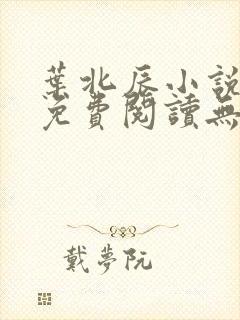 葉北辰小說
免費閱讀無
戴夢阮